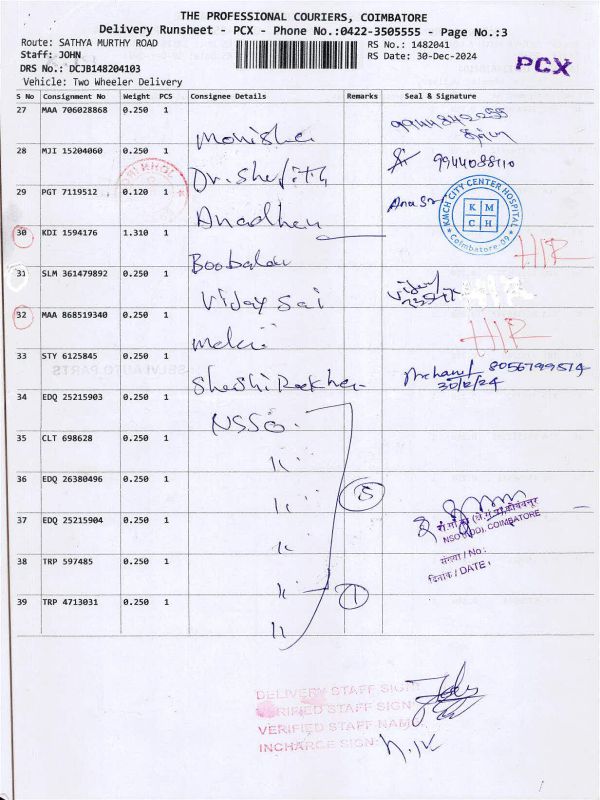 THE PROFESSIONAL COURIERS, COIMBATORE
Delivery Runsheet - PCX - Phone No.:0422-3505555 - Page No.:3
Route: SATHYA MURTHY ROAD
RS No.: 1482041
Staff: JOHN
RS Date: 30-Dec-2024
DRS No.: DCJB148204103
PCX
Vehicle: Two Wheeler Delivery
S No Consignment No Weight PCS Consignee Details Remarks Seal & Signature
27 MAA 706028868 0.250 1
Monisha
28 MJI 15204060 0.250 1
Dr. Shefith 9944088110
29 PGT 7119512 0.120 1
Anadhan
KMCH CITY CENTER HOSPITAL
K M
C H
Coimbatore-09
30 KDI 1594176 1.310 1
Boobalan
31 SLM 361479892 0.250 1
Vijay Sai
32 MAA 868519340 0.250 1
33 STY 6125845 0.250 1
Shashi Reekha 8056799574
30/12/24
34 EDQ 25215903 0.250 1
NSSO
35 CLT 698628 0.250 1
36 EDQ 26380496 0.250 1
5
37 EDQ 25215904 0.250 1
NSO (FOD), COIMBATORE
संख्या / No :
दिनांक / DATE :
38 TRP 597485 0.250 1
1
39 TRP 4713031 0.250 1
DELIVERY STAFF SIGN
VERIFIED STAFF SIGN
VERIFIED STAFF NAME
INCHARGE SIGN: